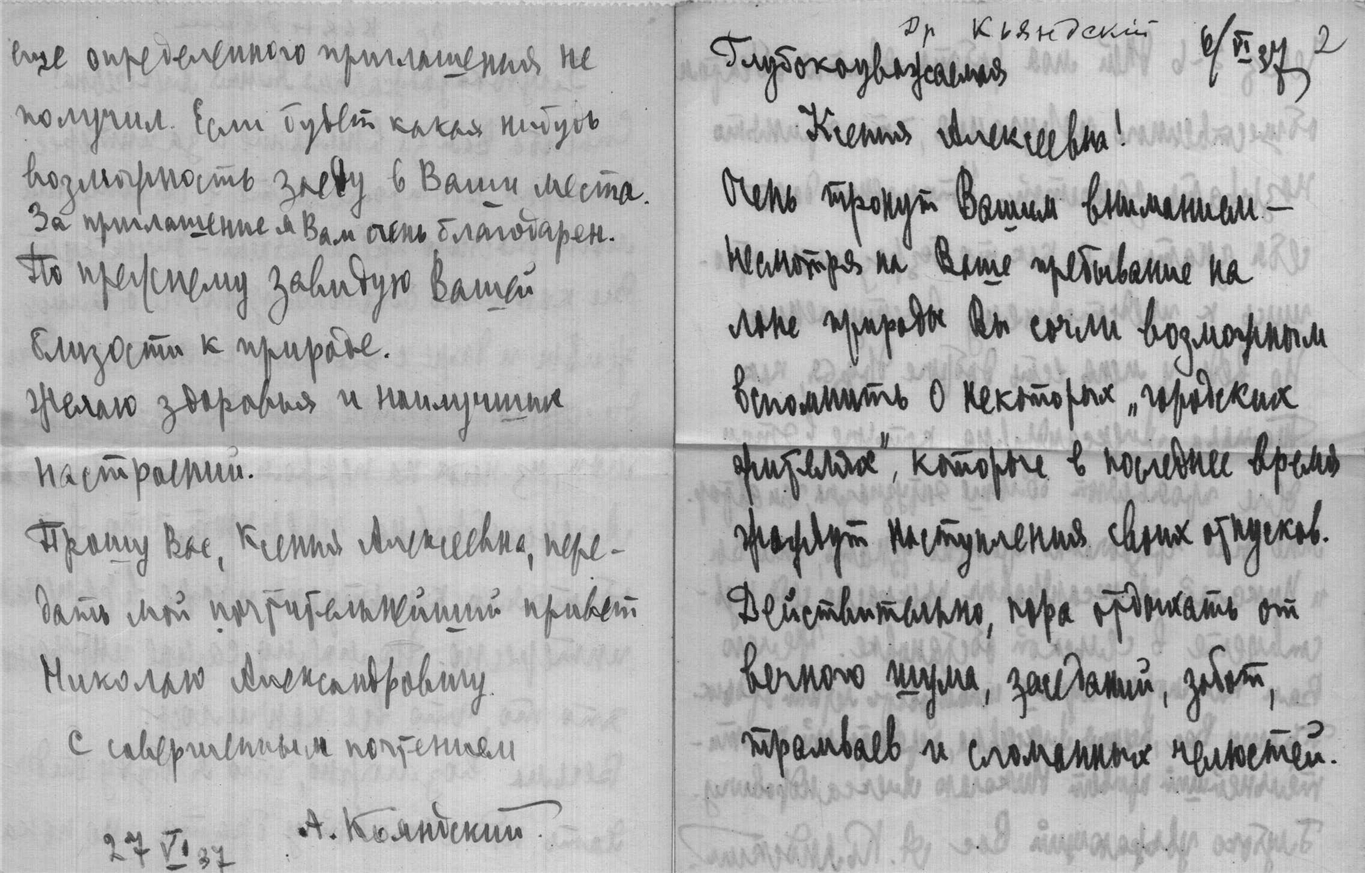 еще определенного приглашения не
получил. Если будет какая нибудь
возможность заеду в Ваши места.
За приглашение я Вам очень благодарен.
По прежнему завидую Вашей
близости к природе.
Желаю здоровья и наилучших
настроений.
Прошу Вас, Ксения Алексеевна, пере-
дать мой почтительнейший привет
Николаю Александровичу.
С совершенным почтением
А. Кьяндский.
27 VI 37
Др Кьяндскій
6/VI 37 2
Глубокоуважаемая
Ксения Алексеевна!
Очень тронут Вашим вниманием –
несмотря на Ваше пребывание на
лоне природы Вы сочли возможным
вспомнить о некоторых „городских
жителях", которые в последнее время
жаждут наступления своих отпусков.
Действительно, пора отдыхать от
вечного шума, заседаний, забот,
трамваев и сломанных челюстей.